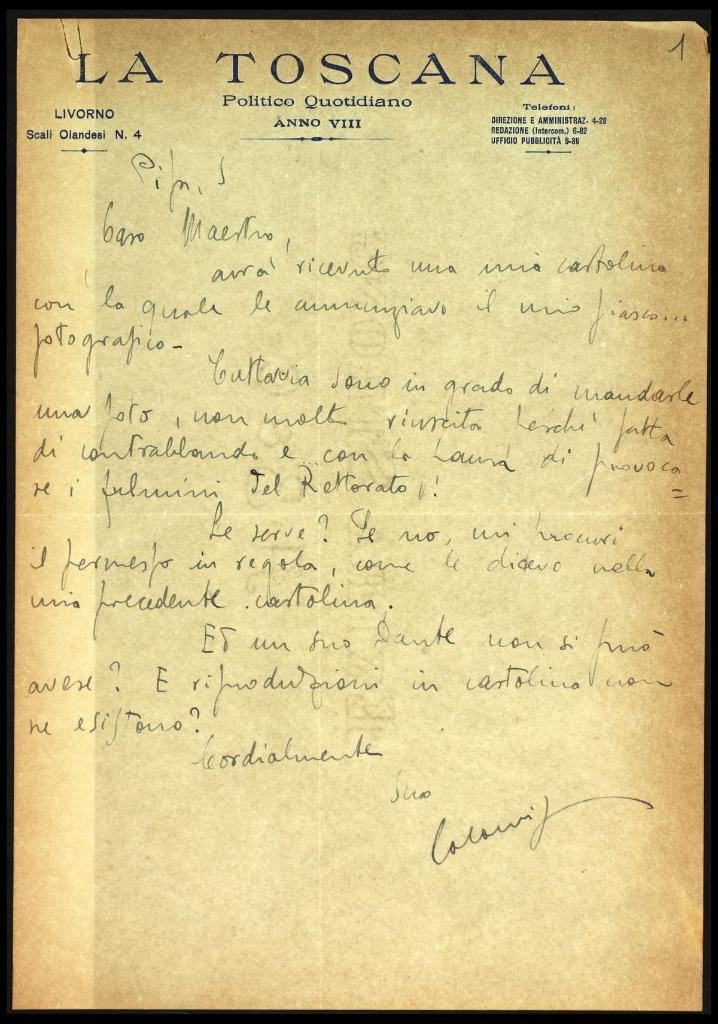 1
LA TOSCANA
Politico Quotidiano
ANNO VIII
LIVORNO
Scali Olandesi N. 4
Telefoni:
DIREZIONE E AMMINISTRAZ. 4-28
REDAZIONE (Intercom.) 6-82
UFFICIO PUBBLICITÀ 9-86
Caro Maestro,
avrà ricevuto una mia cartolina
con la quale le annunziavo il mio fiasco...
fotografico -
Tuttavia sono in grado di mandarle
una foto, non molto riuscita perché fatta
di contrabbando e con la paura di provoca
re i fulmini del Rettorato!
Le serve? Se no, mi procuri
il permesso in regola, come le dicevo nella
mia precedente cartolina.
Ed un suo Dante non si può
avere? E riproduzioni in cartolina non
ne esistono?
Cordialmente
suo